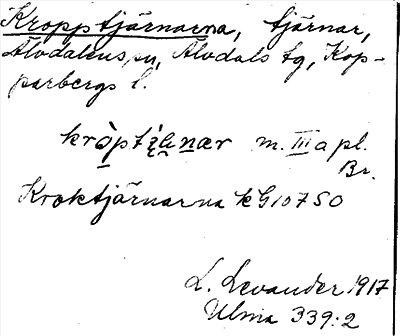 Kropptjärnarna, tjärnar,
Älvdalens sn, Älvdals tg, Kop-
parbergs l.
m. III a pl.
Br.
Kroktjärnarna kG 10750
L. Levander 1917
Ulma 339:2